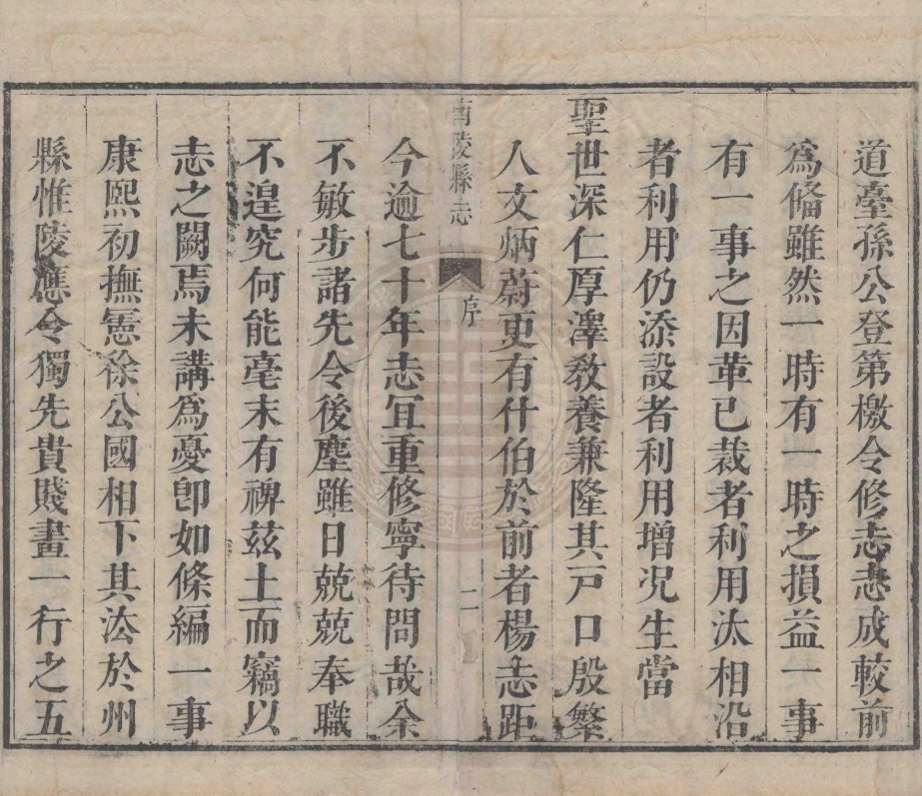 道臺孫公登第檄令修志志成較前
爲偹雖然一時有一時之損益一事
有一事之因革已裁者利用汰相沿
者利用仍添設者利用增况生當
聖世深仁厚澤教養兼隆其戸口殷繁
人文炳蔚更有什伯於前者楊志距
南陵縣志 序 二
今逾七十年志冝重修寧待問哉余
不敏步諸先令後塵雖日兢兢奉職
不遑究何能毫末有裨茲土而竊以
志之闕焉未講爲憂卽如條編一事
康熙初撫憲徐公國相下其法於州
縣惟陵應令獨先貴賤畫一行之五